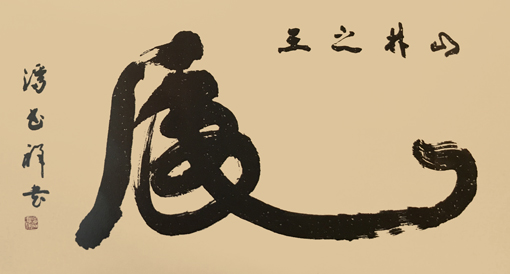 山林之王
虎
潘祥书